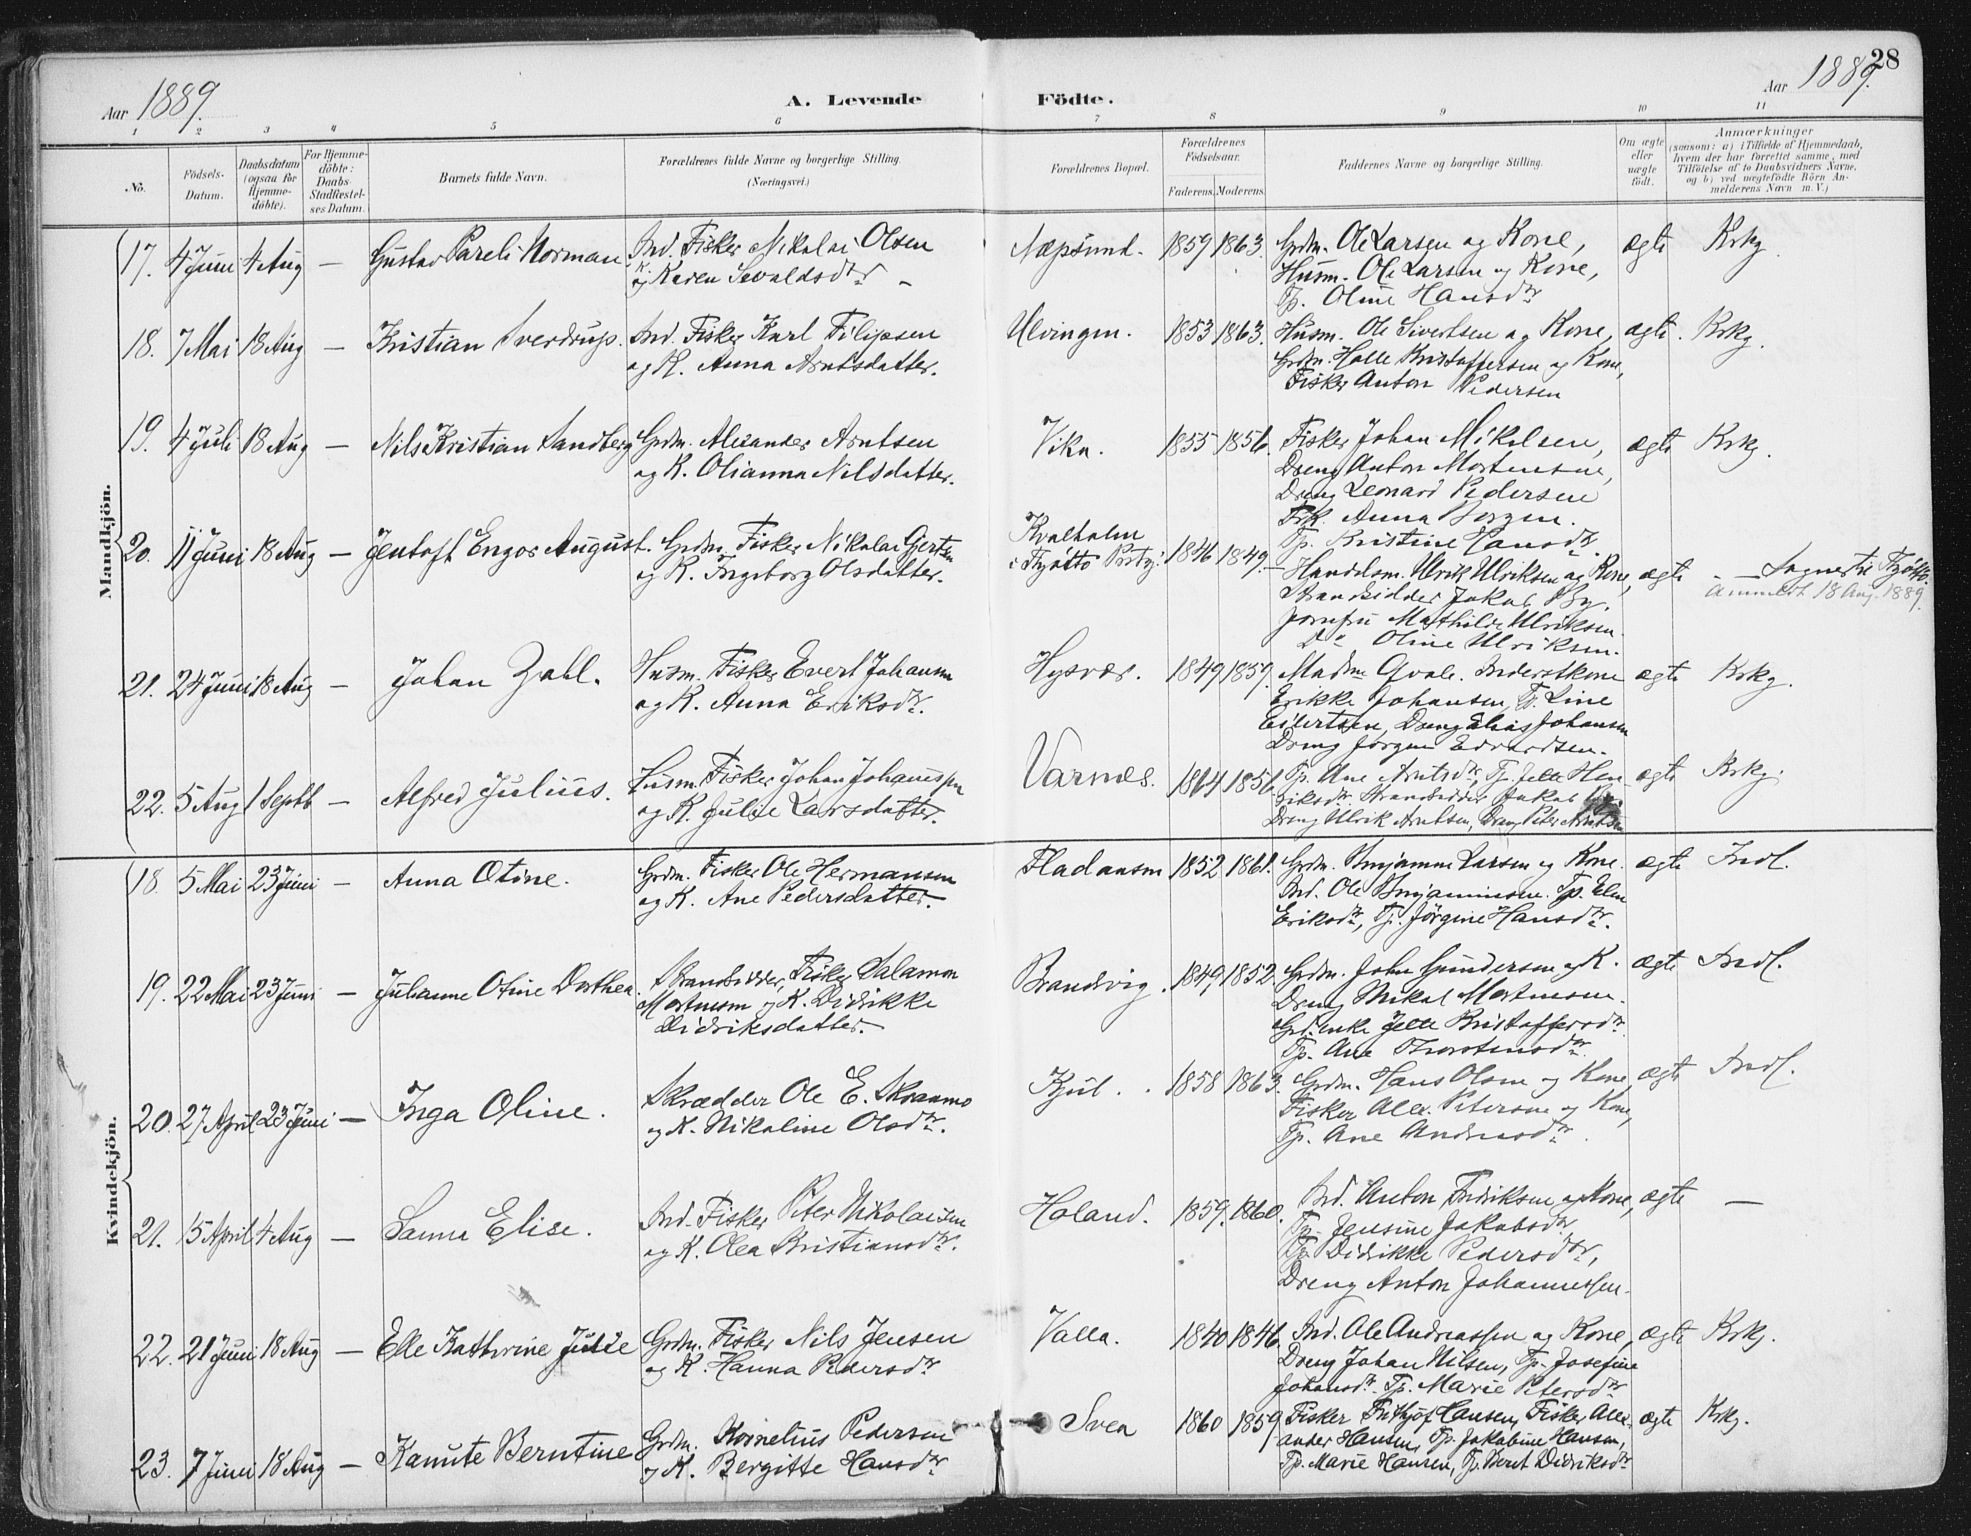 28
Aar 1889.
A. Levende Födte.
Aar 1889.
1 2 3 4 5 6 7 8 9 10 11
No.
Födsels-Datum.
Daabsdatum (ogsaa for Hjemme-döbte).
For Hjemme-döbte: Daabs-Stadfæstel-ses Datum.
Barnets fulde Navn.
Forældrenes fulde Navne og borgerlige Stilling.
(Næringsvei.)
Forældrenes Bopæl.
Forældrenes Födselsaar.
Faderens. Moderens.
Faddernes Navne og borgerlige Stilling.
Om ægte eller uægte født.
Anmærkninger
(saasom: a) i Tilfælde af Hjemmedaab, hvem der har forrettet samme, med Tilföielse af to Daabsvidners Navne, og b) ved uægtefödte Börn An-melderens Navn m. V.)
Mandkjön.
17. 4 Juni 4 Aug — Gustav Pareli Norman Ind. Fisker Nikolai Olsen Næpsund. 1859 1863. Grdm. Ole Larsen og Kone, ægte Krkg.
og K. Karen Sevaldsdtr — Husm. Ole Larsen og Kone,
Tp. Oline Hansdtr
18. 7 Mai 18 Aug — Kristian Sverdrup. Ind. Fisker Karl Filipsen Ulvingen. 1853 1863. Husm. Ole Sivertsen og Kone, ægte. Krkg.
og K. Anna Arntsdatter. Grdm. Halle Kristoffersen og Kone,
Fisker Anton Pedersen
19. 4 Juli 18 Aug — Nils Kristian Sandberg Grdm. Alexander Arntsen Vika. 1855 1856. Fisker Johan Mikalsen, ægte Krkg.
og K. Olianna Nilsdatter. Dreng Anton Mortensen,
Dreng Leonard Pedersen
Frk. Anna Borgen.
Tp. Kristine Hansdtr.
20. 11 Juni 18 Aug — Jentoft Enger August. Grdm. Fisker Nikolai Gertsen Kvalholm 1846 1849. — Handelsm. Ulrik Ulriksen og Kone, ægte — Sognet til Tjøtta.
og K. Ingeborg Olsdatter. i Tjøtto Prstgj. Strandsidder Jakob By. Anmeldt 18 Aug. 1889.
Jomfru Mathilde Ulriksen.
Do Oline Ulriksen.
21. 24 Juni 18 Aug — Johan Zahl. Husm. Fisker Evert Johansen Hysvær. 1849 1859. Madm. Qvale. Inderstkone ægte Krkg.
og K. Anna Eriksdtr. Erikke Johansen, Tp. Line
Eilertsen, Dreng Elias Johansen
Dreng Jørgen Edvardsen.
22. 5 Aug 1 Septb — Alfred Julius. Husm. Fisker Johan Johanssen Varnes. 1864 1856. Tp. Ane Arntsdtr, Tp. Jelle Hen ægte Krkg.
og K. Julie Larsdatter. riksdtr. Strandsidder Jakob
Dreng Ulrik Arntsen, Dreng Peter Arntsen
Kvindekjön.
18. 5 Mai 23 Juni — Anna Otine. Grdm. Fisker Ole Hermansen Fladansm 1852 1861. Grdm. Benjamin Larsen og Kone. ægte Indl.
og K. Ane Pedersdatter. Ind. Ole Benjaminsen. Tp. Elen
Eriksdtr, Tp. Jørgine Hansdtr.
19. 22 Mai 23 Juni — Julianne Otine Dorthea. Strandsidder, Fisker Salamon Brandvig. 1849 1852. Grdm. John Gundersen og K. ægte Indl.
Mortensen og K. Didrikke Dreng Mikal Mortensen.
Didriksdatter. Grd. enke Jelle Kristoffersdtr.
Tp. Ane Thorstensdtr.
20. 27 April 23 Juni — Inga Oline. Skrædder Ole E. Skraamo Kjul. 1858 1863. Grdm. Hans Olsen og Kone, ægte Indl.
og K. Nikoline Olsdtr. Fisker Alex. Petersen og Kone,
Tp. Ane Andreasdtr.
21. 15 April 4 Aug — Sanna Elise. Ind. Fisker Peter Nikolaisen Holand. 1859. 1860. Ind. Anton Fredriksen og Kone, ægte —
og K. Olea Kristiansdtr. Tp. Jensine Jakobsdtr.
Tp. Didrikke Pedersdtr,
Dreng Anton Johannessen.
22. 21 Juni 18 Aug — Elle Katherine Julie Grdm. Fisker Nils Jensen Valla. 1840 1846. Ind. Ole Andreassen og Kone, ægte Krkg.
og K. Hanna Pedersdtr Dreng Johan Nilsen, Tp. Josefine
Johansdtr. Tp. Marie Petersdtr
23. 7 Juni 18 Aug — Kanute Berntine Grdm. Kornelius Pedersen Svea 1860 1859. Fisker Frithjof Hansen, Fisker Alex- ægte Krkg.
og K. Bergitte Hansdtr ander Hansen, Tp. Jakobine Hansen,
Tp. Marie Hansen, Tp. Beret Didriksdtr